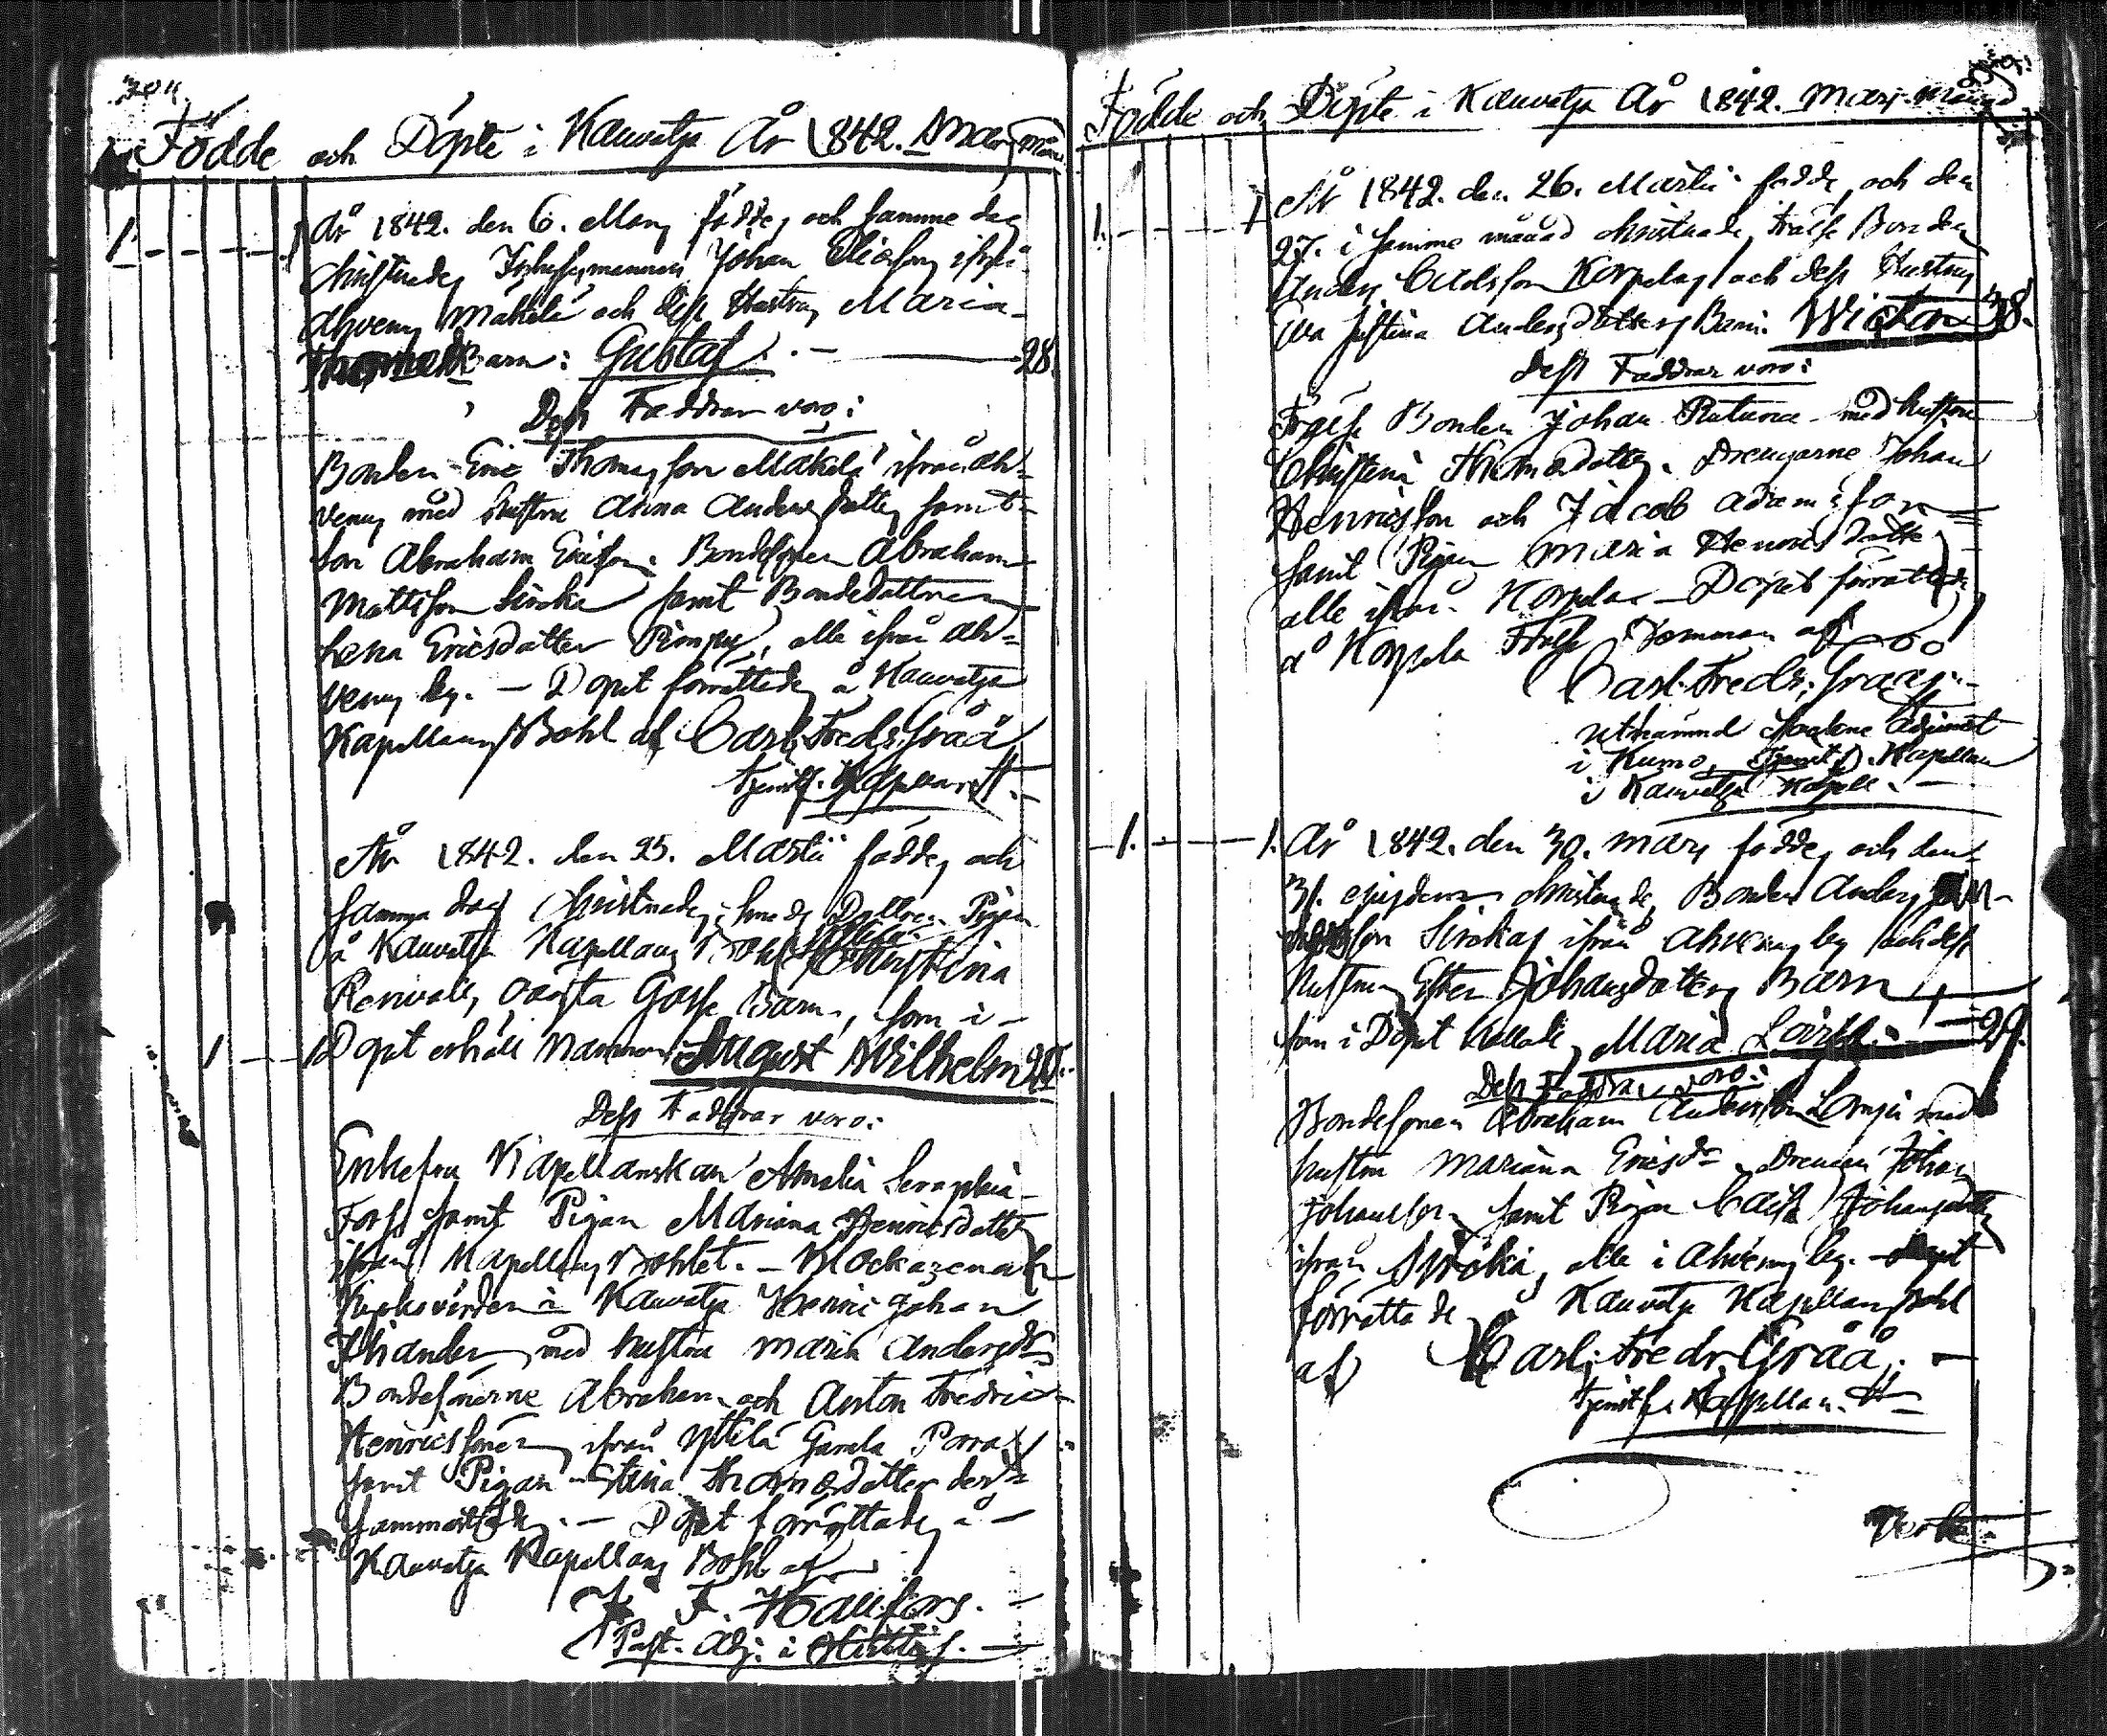 304.
Födde och Döpte i Kauvatsa År 1842. Mars Mån.
År 1842. den 6. Mars födde, och samme dag
christnades Inhysesmannen Johan Eliasson, ifrån
Ahvenus Mäkelä och dess Hustrus Maria
Barn: Gustaf. — 28.
Dess Faddrar voro:
Bonden Eric Thomasson Mäkelä ifrån Ah-
venus med hustru Anna Andersdotter samt
son Abraham Ericsson. Bondesonen Abraham
Mattsson Siroka samt Bondedottren
Lena Ericsdotter, alle ifrån Ah-
venus by. — Dopet förrättades å Kauvatsa
Kapellans Bohl af Carl Fredr. Gråå
tjenstf. Kapellan.
År 1842. den 25. Martii föddes och
samma dag christnades Pigan
å Kauvatsa Kapellans Bohl Christina
Renvalls oägta Gosse Barn, som i
1 — 1 Dopet erhöll Namnen August Wilhelm
Dess Faddrar voro:
Enkefru Kapellanskan Amalia Seraphia
Forss samt Pigan Mariana Henricsdotter
ifrån Kapellans Bohlet. — Klockaren och
Kyrkovärden i Kauvatsa Henric Johan
Thiander med hustru Maria Andersdr.
Bondesönerne Abraham och Anton Fredric
Henricssöner ifrån Yttilä Gamla
samt Pigan Stina Thomasdotter der-
sammastädes. — Dopet förrättades å
Kauvatsa Kapellans Bohl af
F. Hallfors.
Past. Adj. i Hvittis.
Födde och Döpte i Kauvatsa År 1842. Mars månad
1. — 1 År 1842. den 26. Martii födde, och den
27. i samme månad christnade Frälse Bonden
Anders Carlsson Korpelas och dess Hustrus
Eva Justina Andersdotters Barn. Victor 38.
Dess Faddrar voro:
Frälse Bonden Johan med hustru
Christina Thomasdotter. Drengarne Johan
Henricsson och Jacob Adamsson
samt Pigan Maria Henricsdotter
alle ifrån Korpela — Dopet förrättades
å Korpela Frälse Hemman af
Carl Fredr. Gråå.
utnämnd Sockne Adjunct
i Kumo, tjenstf. Kapellan
i Kauvatsa Kapell. —
1. — 1. År 1842. den 30. Mars föddes och den
31. ejusdem christnades Bonden Anders
son Sirokas ifrån Ahvenus by och dess
hustrus Ester Johansdotters Barn,
som i Dopet kallades Maria Lovisa. — 29.
Dess Faddrar voro:
Bondesonen Abraham Andersson Lempi med
hustru Mariana Ericsdr. Drengen Johan
Johansson samt Pigan Caisa Johansdotter
ifrån Siroka, alle i Ahvenus by. — Dopet
förrättades å Kauvatsa Kapellans Bohl
af Carl Fredr. Gråå. —
tjenstf. Kapellan.